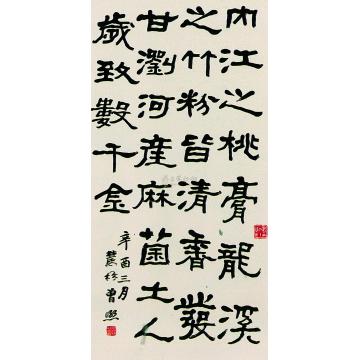 内江之桃膏龍溪
之竹粉皆清香發
甘瀏河産麻菌土人
歲致數千金
辛酉三月
農髯曾熙